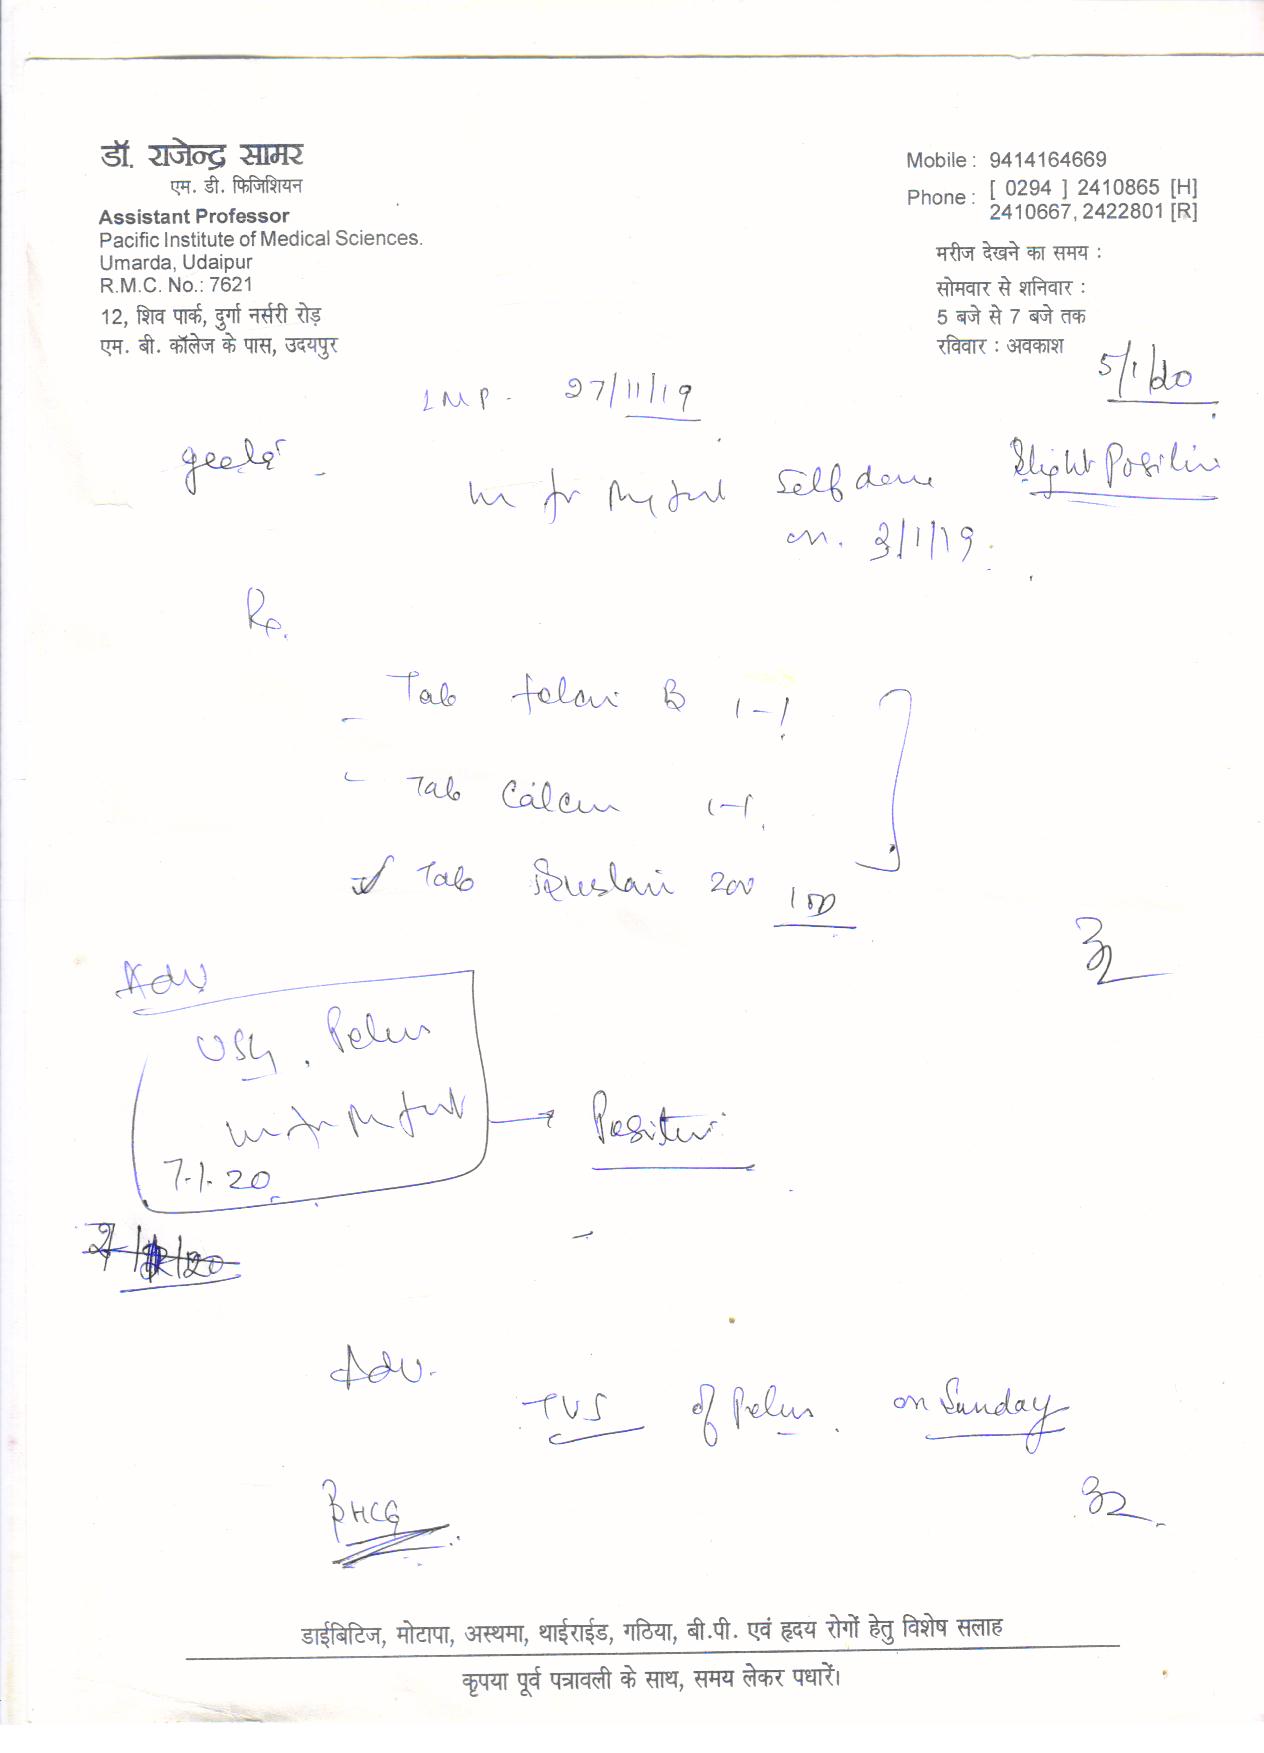 डॉ. राजेन्द्र सामर
एम. डी. फिजिशियन
Assistant Professor
Pacific Institute of Medical Sciences.
Umarda, Udaipur
R.M.C. No.: 7621
12, शिव पार्क, दुर्गा नर्सरी रोड़
एम. बी. कॉलेज के पास, उदयपुर
Mobile : 9414164669
Phone : [ 0294 ] 2410865 [H]
2410667, 2422801 [R]
मरीज देखने का समय :
सोमवार से शनिवार :
5 बजे से 7 बजे तक
रविवार : अवकाश
5/1/20
LMP. 27/11/19
geeta -
Self done Slight Positive
on. 3/1/19.
Rx.
- Tab B 1-1
- Tab 1-1.
Tab 200 1 OD
Adv
USG. Pelvis
7.1.20 → Positive
Adv.
TVS of Pelvis. on Sunday
βHCG
डाईबिटिज, मोटापा, अस्थमा, थाईराईड, गठिया, बी.पी. एवं हृदय रोगों हेतु विशेष सलाह
कृपया पूर्व पत्रावली के साथ, समय लेकर पधारें।